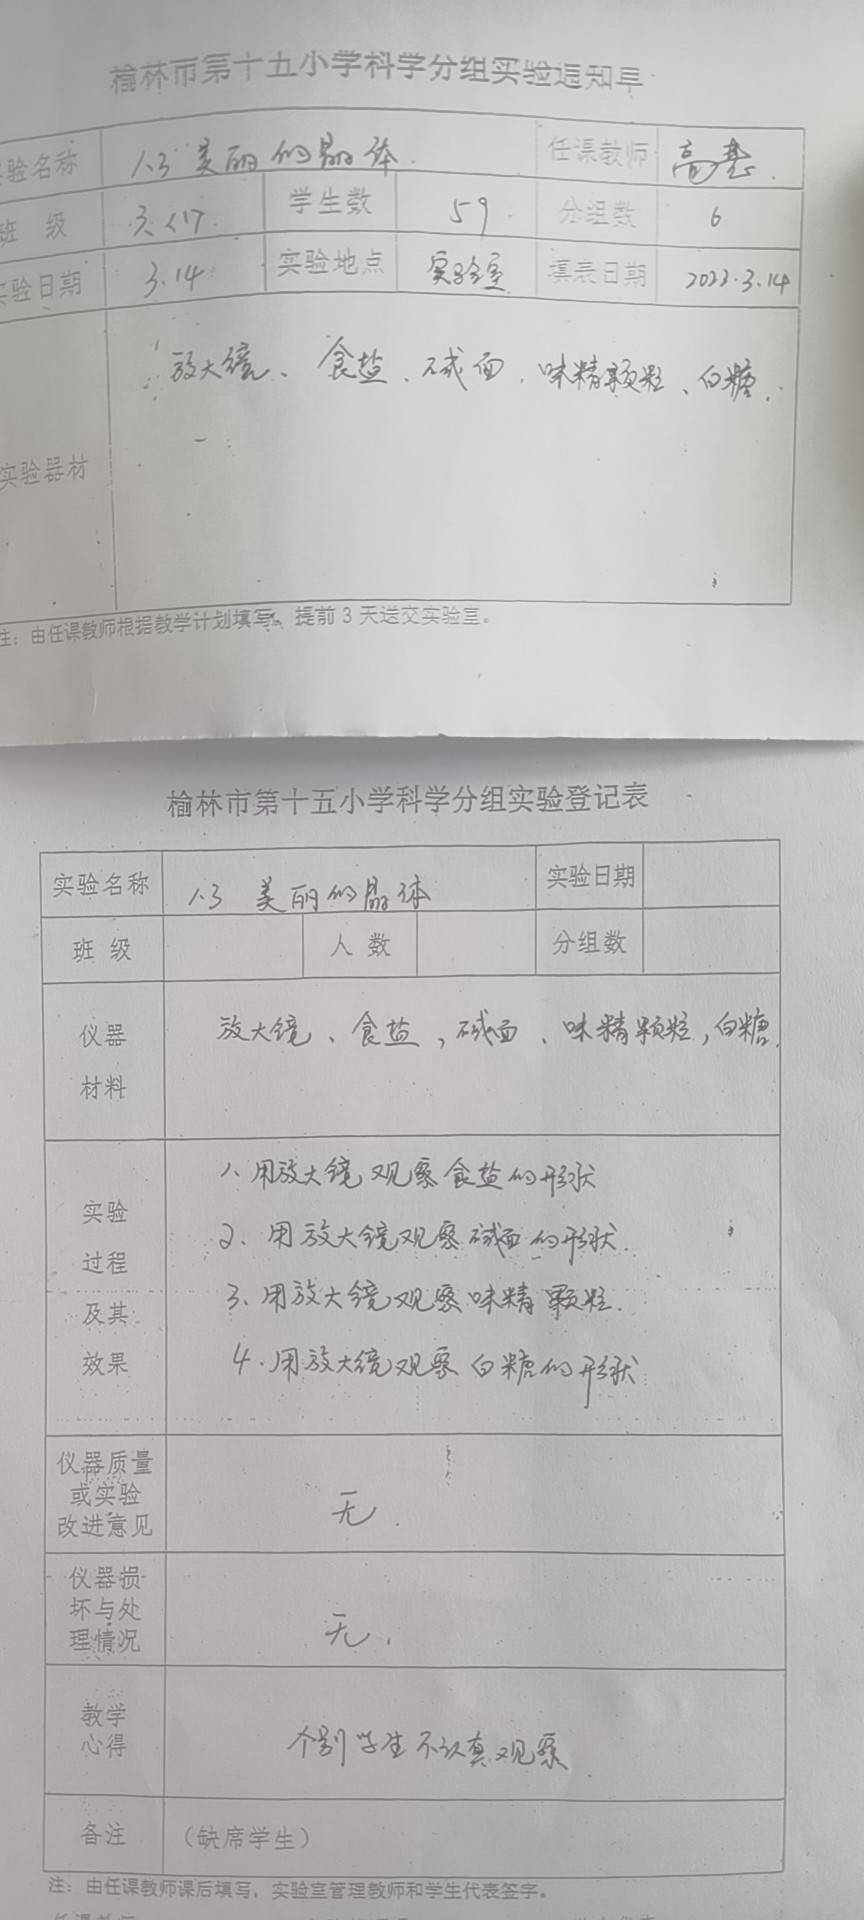 榆林市第十五小学科学分组实验通知单
实验名称 1.3 美丽的晶体. 任课教师
班 级 学生数 59. 分组数 6
实验日期 3.14 实验地点 实验室 填表日期 2023.3.14
放大镜、食盐、碱面、味精颗粒、白糖.
实验器材
注：由任课教师根据教学计划填写，提前 3 天送交实验室。
榆林市第十五小学科学分组实验登记表
实验名称 1.3 美丽的晶体 实验日期
班 级 人 数 分组数
仪器 放大镜、食盐，碱面、味精颗粒，白糖.
材料
1、用放大镜观察食盐的形状
实验 2、用放大镜观察碱面的形状.
过程
及其 3、用放大镜观察味精颗粒.
效果 4.用放大镜观察白糖的形状
仪器质量
或实验 无.
改进意见
仪器损
坏与处 无.
理情况
教学
心得 个别学生不认真观察
备注 （缺席学生）
注：由任课教师课后填写，实验室管理教师和学生代表签字。